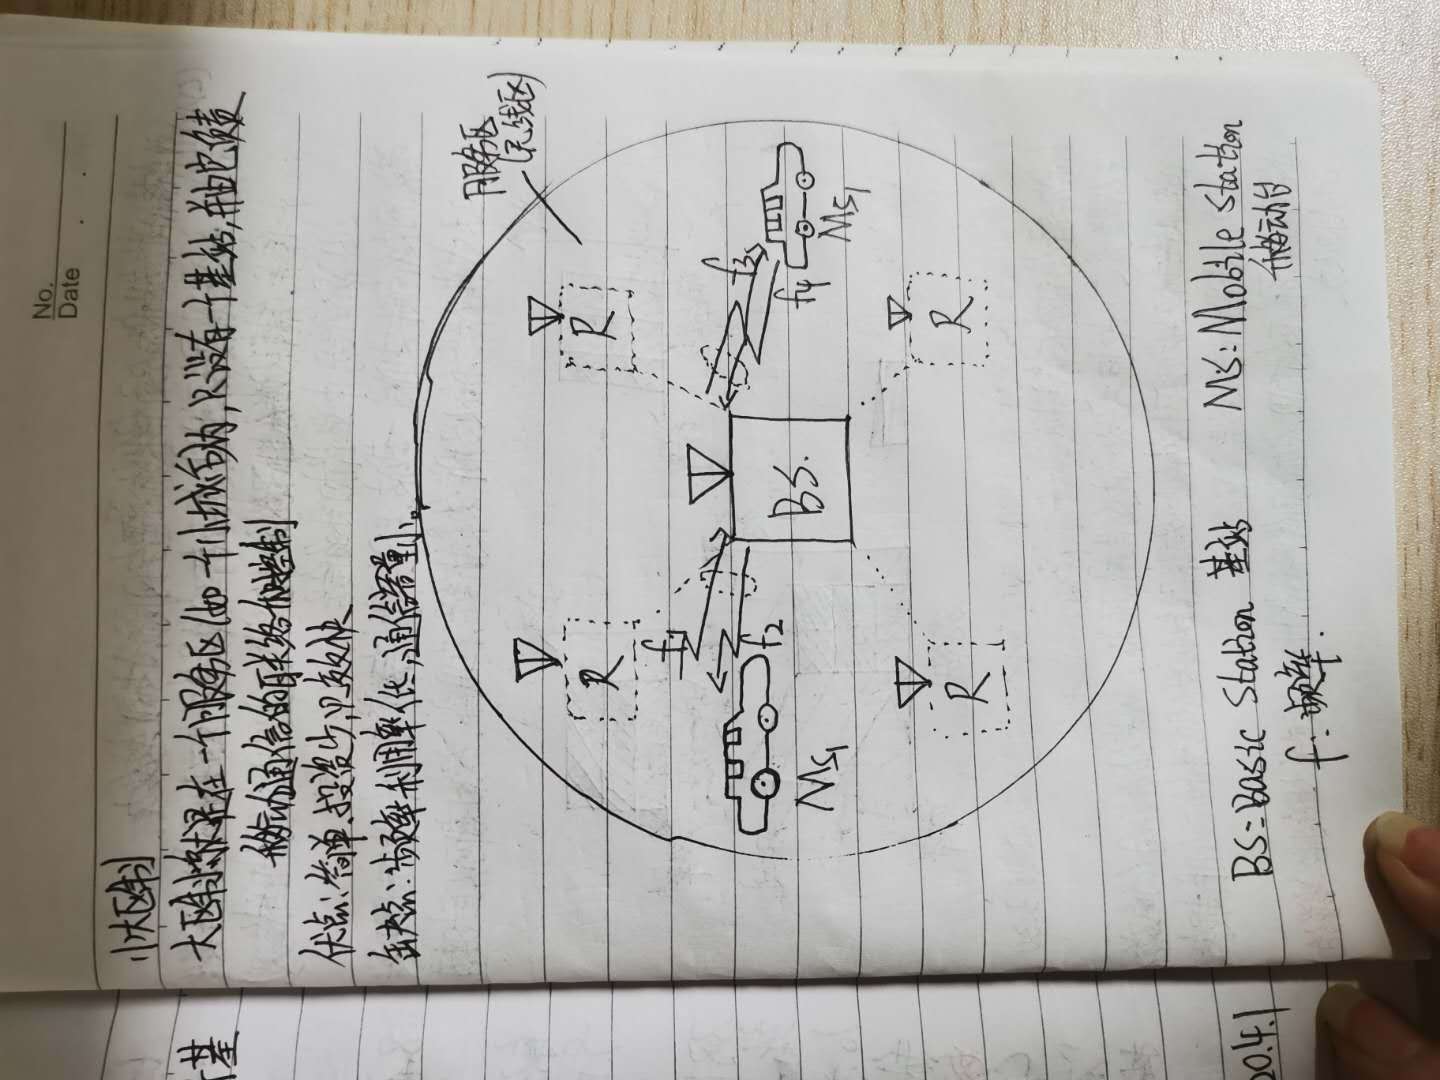 No.
Date
1)大区制
大区制就是在一个服务区(如一个小城市)内,只设有一个基站,并由它负责
移动通信的联络和控制
优点:简单、投资少,见效快
缺点:频率利用率低,通信容量小
服务区
(无线区)
R
R
BS.
f1
f2
f3
f4
MS1
MS1
R
R
BS:Basic Station 基站
MS:Mobile Station
移动台
f:频率.
基
20.4.1